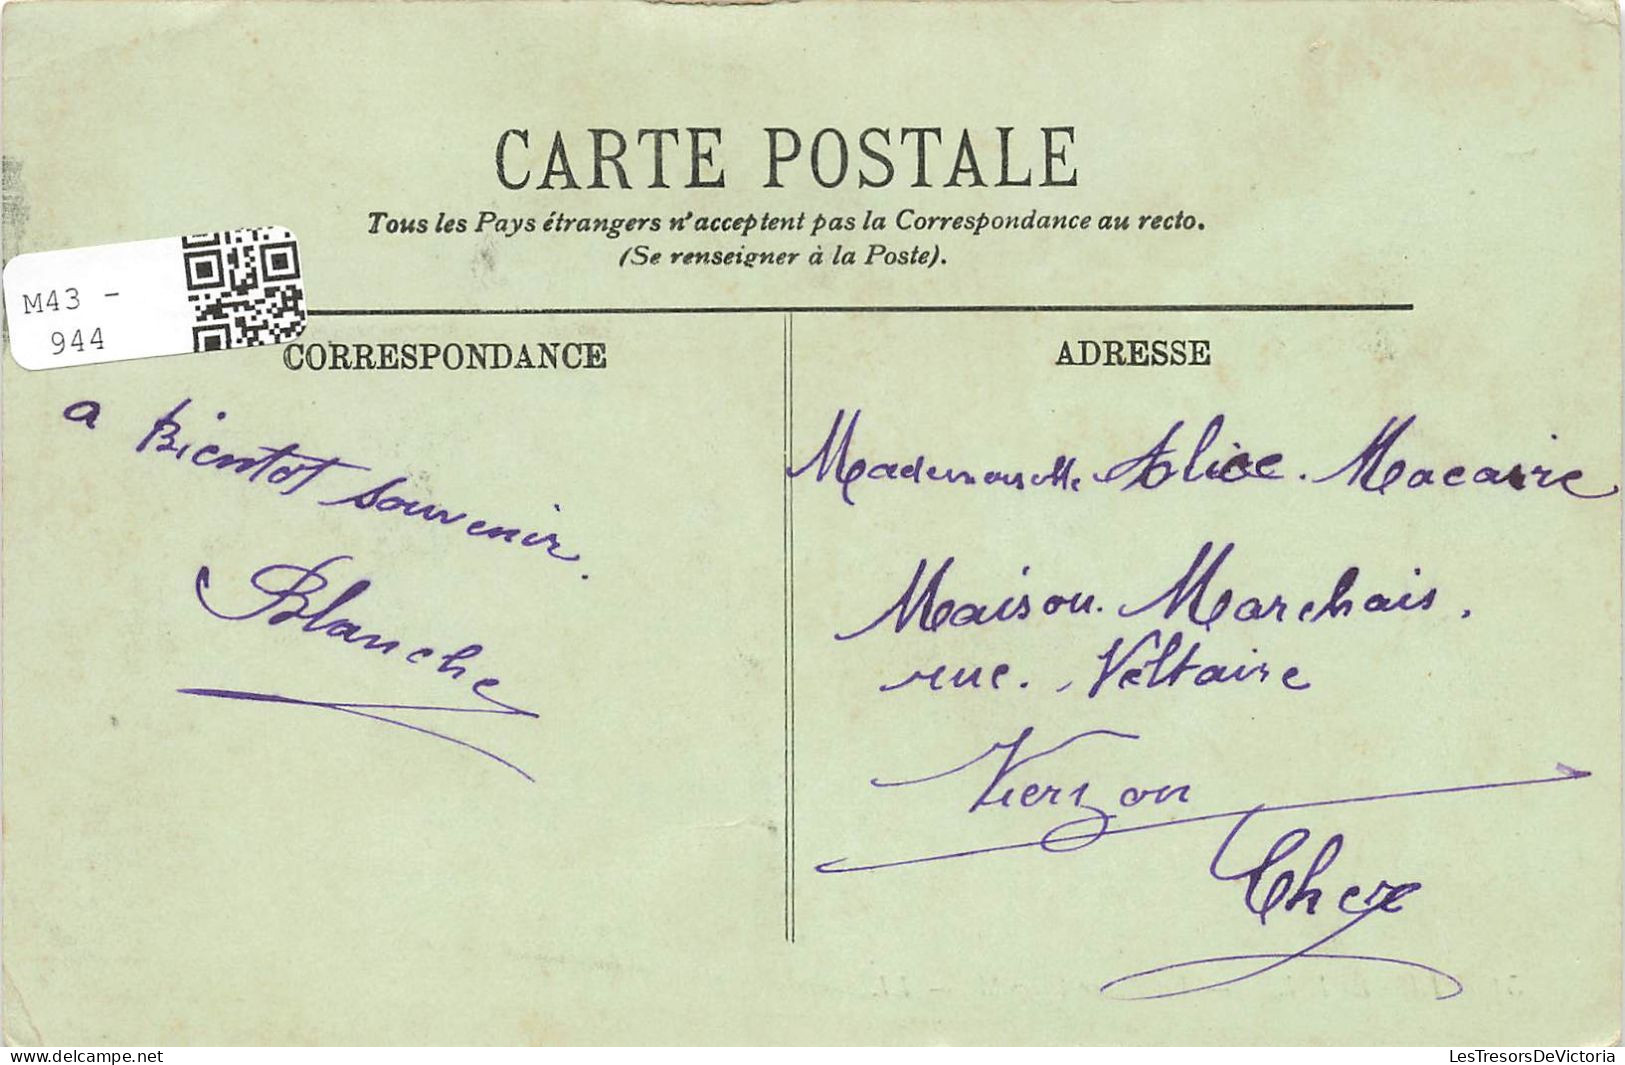 CARTE POSTALE
Tous les Pays étrangers n'acceptent pas la Correspondance au recto.
(Se renseigner à la Poste).
M43 -
944
CORRESPONDANCE
a Bientot souvenir.
Blanche
ADRESSE
Mademoiselle Alice. Macaire
Maison. Marchais.
rue. Voltaire
Vierzon
Cher
delcampe.net
LesTresorsDeVictoria